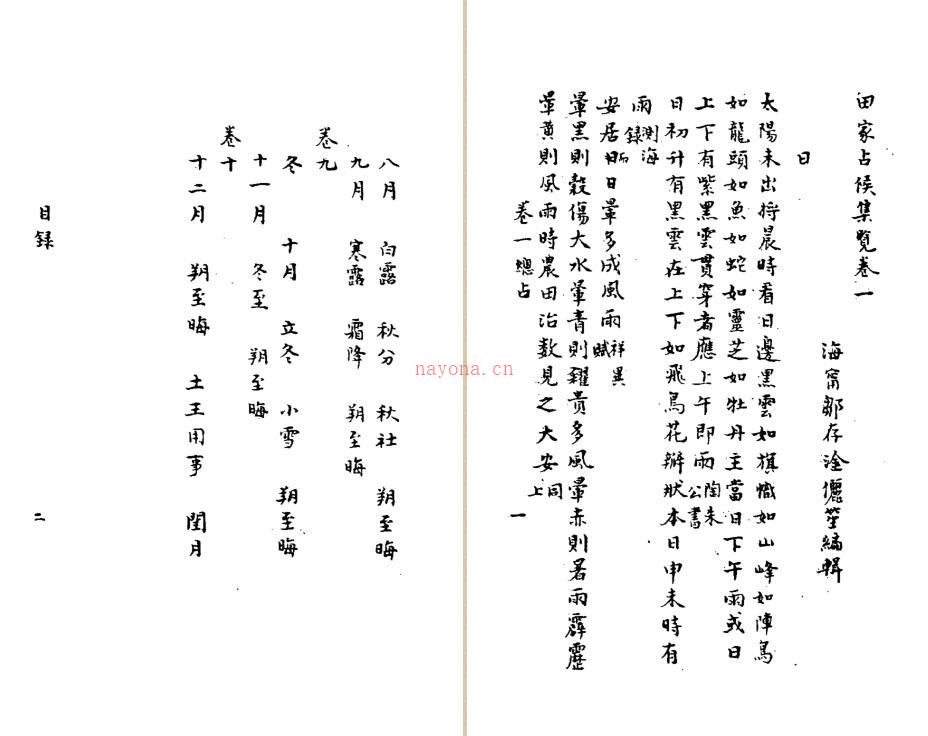 田家占候集覽卷一
海甯鄒存淦儷笙編輯
日
太陽未出將晨時看日邊黑雲如旗幟如山峰如陣鳥
如龍頭如魚如蛇如靈芝如牡丹主當日下午雨或日
上下有紫黑雲貫穿者應上午即雨陶朱公書
日初升有黑雲在上下如飛鳥花瓣狀本日申未時有
雨測海錄
安居日暈多成風雨祥異賦
暈黑則穀傷大水暈青則糴貴多風暈赤則暑雨霹靂
暈黃則風雨時農田治數見之大安同上
卷一總占 一
八月 白露 秋分 秋社 朔至晦
九月 寒露 霜降 朔至晦
卷九
冬 十月 立冬 小雪 朔至晦
十一月 冬至 朔至晦
卷十
十二月 朔至晦 土王用事 閏月
目録 二
nayona.cn